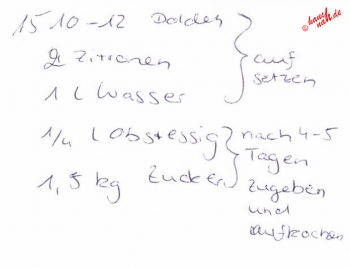 © hauch nah.de
15 10-12 Dolden
2 Zitronen
1 l Wasser
auf
setzen
1/4 l Obstessig
1,5 kg Zucker
nach 4-5
Tagen
zugeben
und
aufkochen